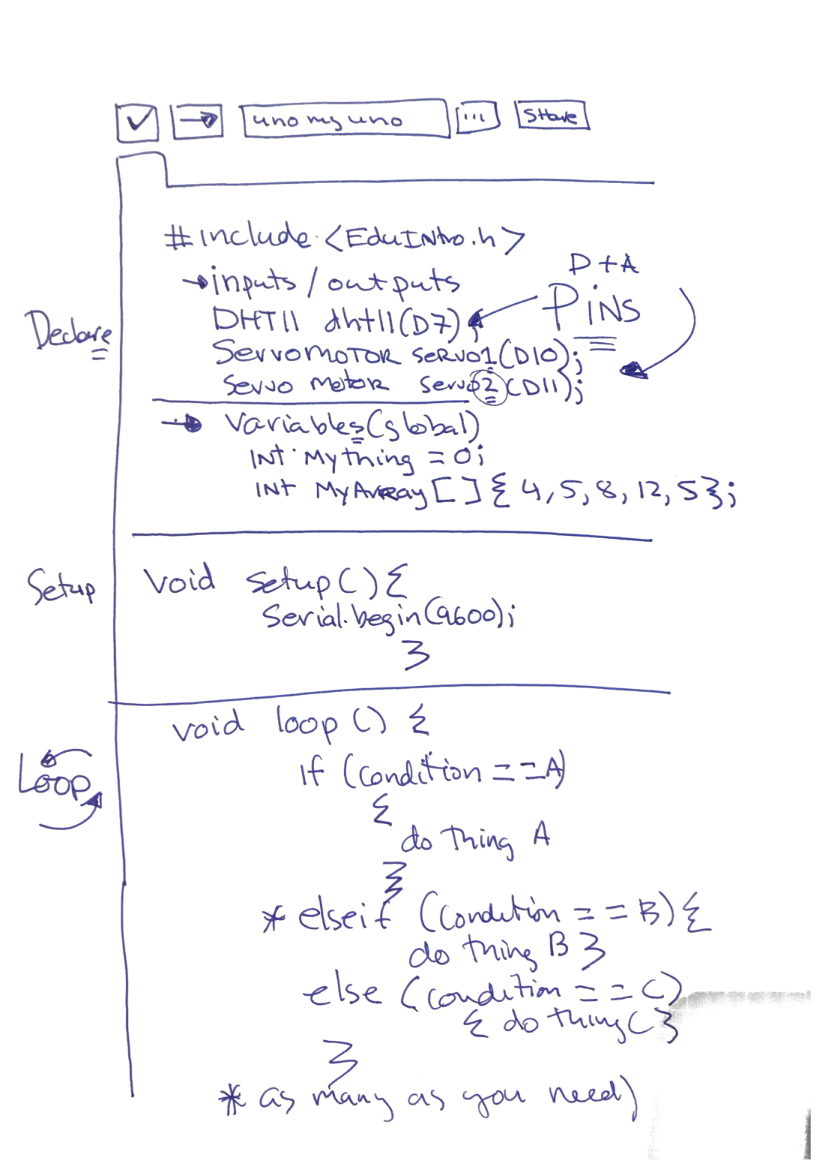 uno my uno ... Share
#include <EduIntro.h>
→ inputs / outputs
D + A
Pins
Declare
DHT11 dht11(D7);
ServoMOTOR servo1(D10);
Servo Motor servo2(D11);
→ Variables (global)
INT Mything = 0;
INT MyArray[]{4,5,8,12,5};
Setup
Void setup(){
Serial.begin(9600);
}
Loop
void loop() {
if (condition == A)
{
do thing A
}
* elseif (condition == B){
do thing B }
else (condition == C)
{ do thing C}
}
* as many as you need)